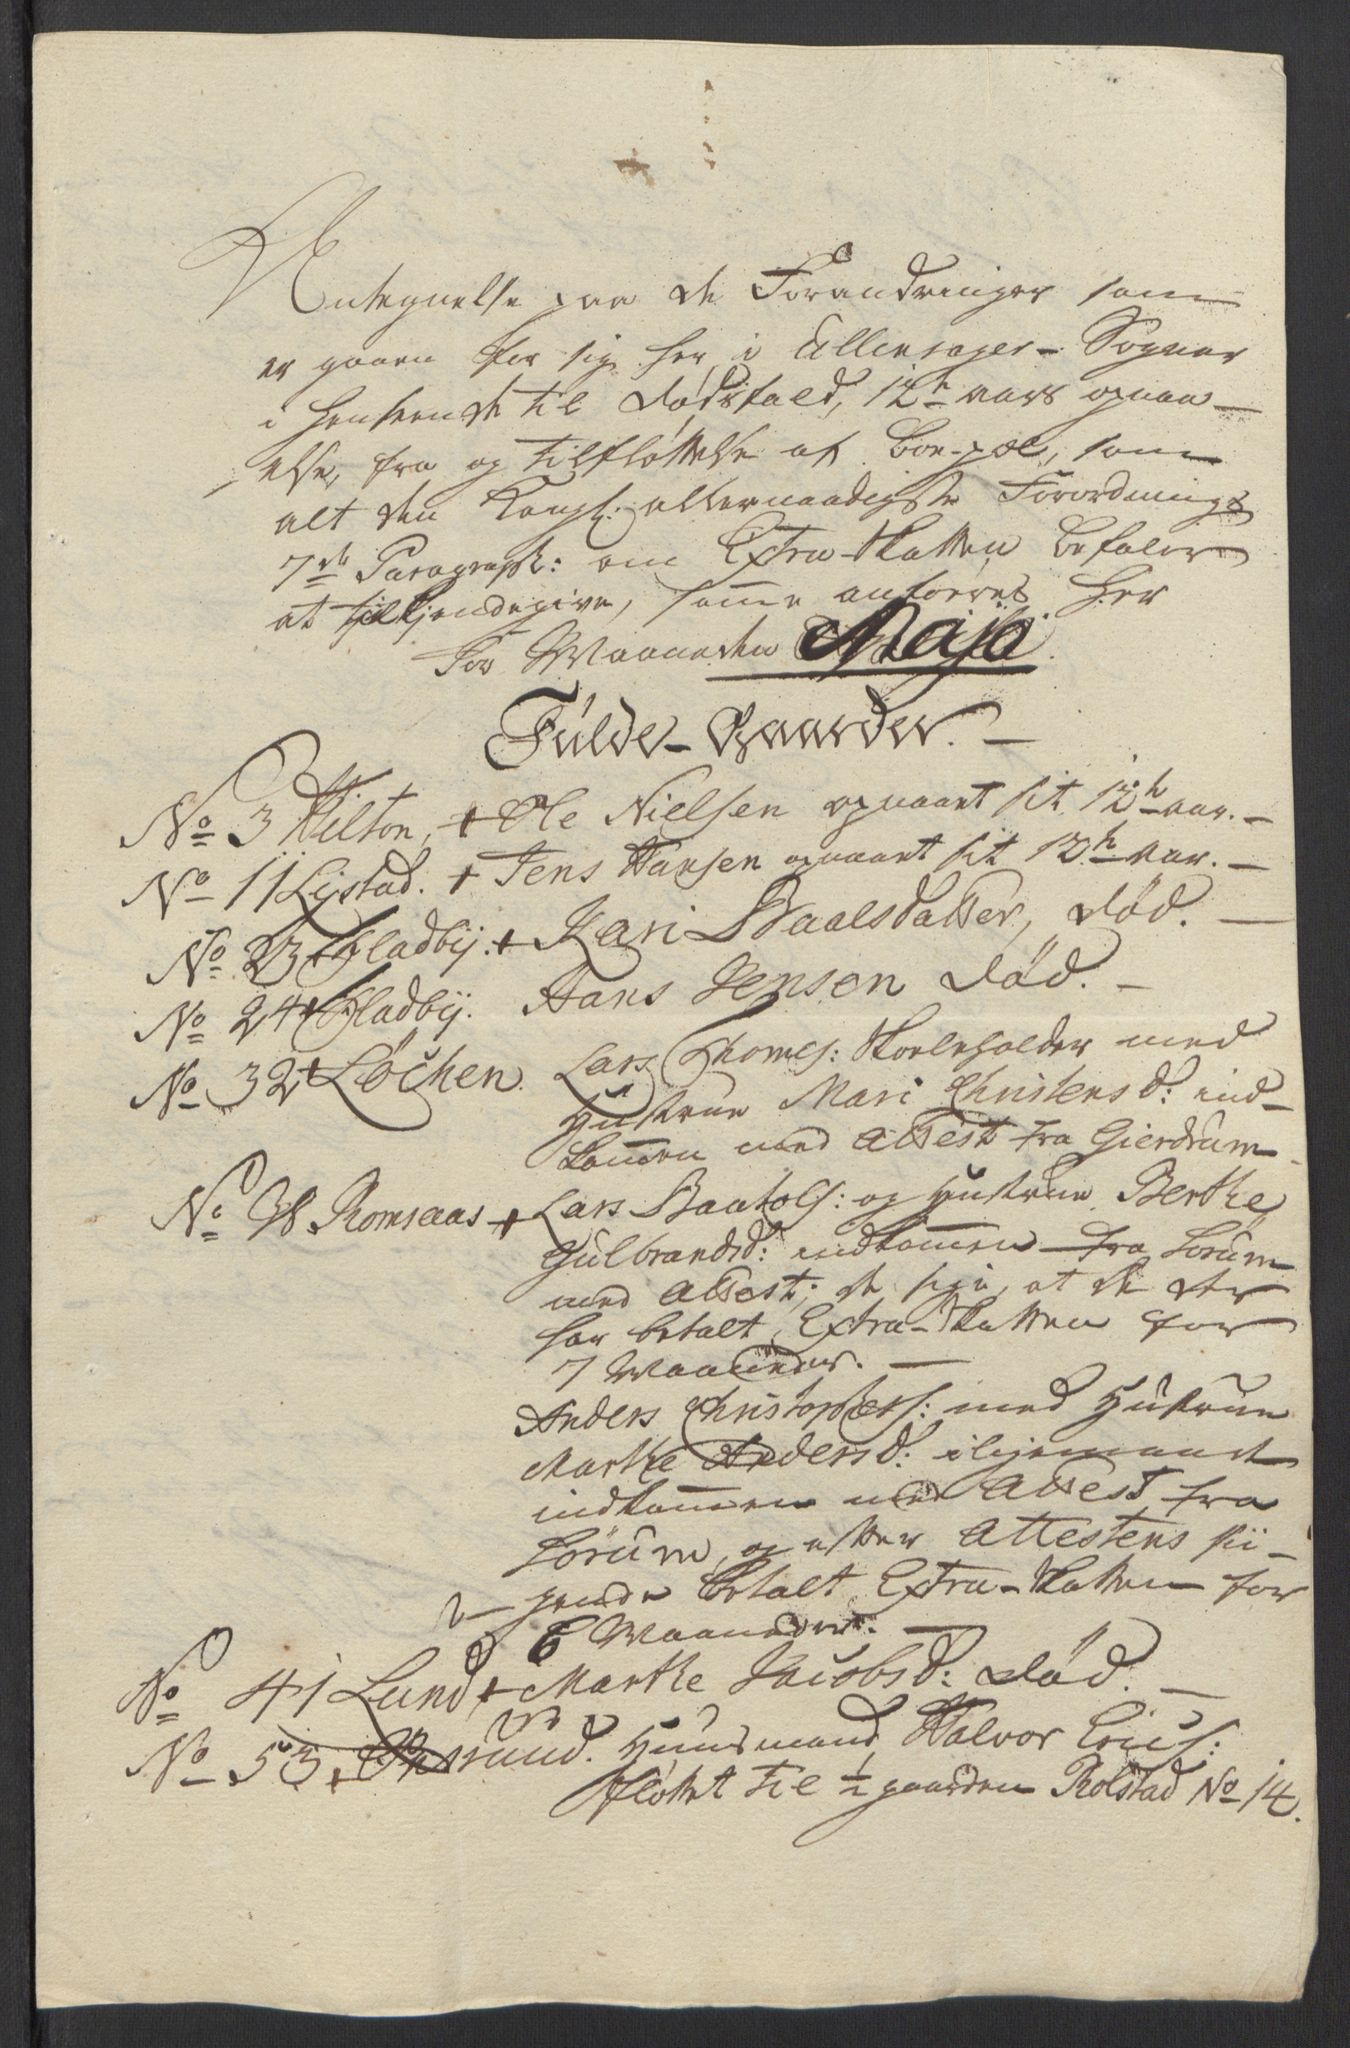 Antegnelse paa de Forandringer som
er gaaen for sig her i Ullensager Sogner
i henseende til Dødsfald, 12te aars opnaa-
else, fra og tilfløttelse af Boe-pæl, som
alt den Kongl: allernaadigste Forordnings
7de Paragraph: om Extra-Skatten befaler
at tilkiendegive, samme anføres her
for Maaneden Maji
Fulde-Gaarder.
No 3 Hilton, + Ole Nielsen opnaaet sit 12te aar.
No 11 Lystad. + Jens Hansen opnaaet sit 12te aar.
No 23 + Fladbÿ. + Kari Paalsdatter, død.
No 24 + Fladbÿ. Hans Jensen død.
No 32 + Løchen. Lars Thomes: Skoleholder med
Hustrue Mari Christensd: ind-
kommen med Attest fra Gierdrum
No 38 Romsaas + Lars Paatols: og Hustrue Berthe
Gulbrandsd: indkommen fra Sørum
med Attest; de sige, at de der
har betalt Extra-Skatten for
7 Maaneder.
Anders Christophers: med Hustrue
Marthe Andersd: iligemaade
indkommen med Attest fra
Sørum, og efter Attestens sii-
gende betalt Extra-Skatten for
6 Maaneder.
No 41 Lund + Marthe Jacobsd: død.
No 53 + Huusmand Halvor Erics:
fløttet til ½ gaarden Rolstad No 14.